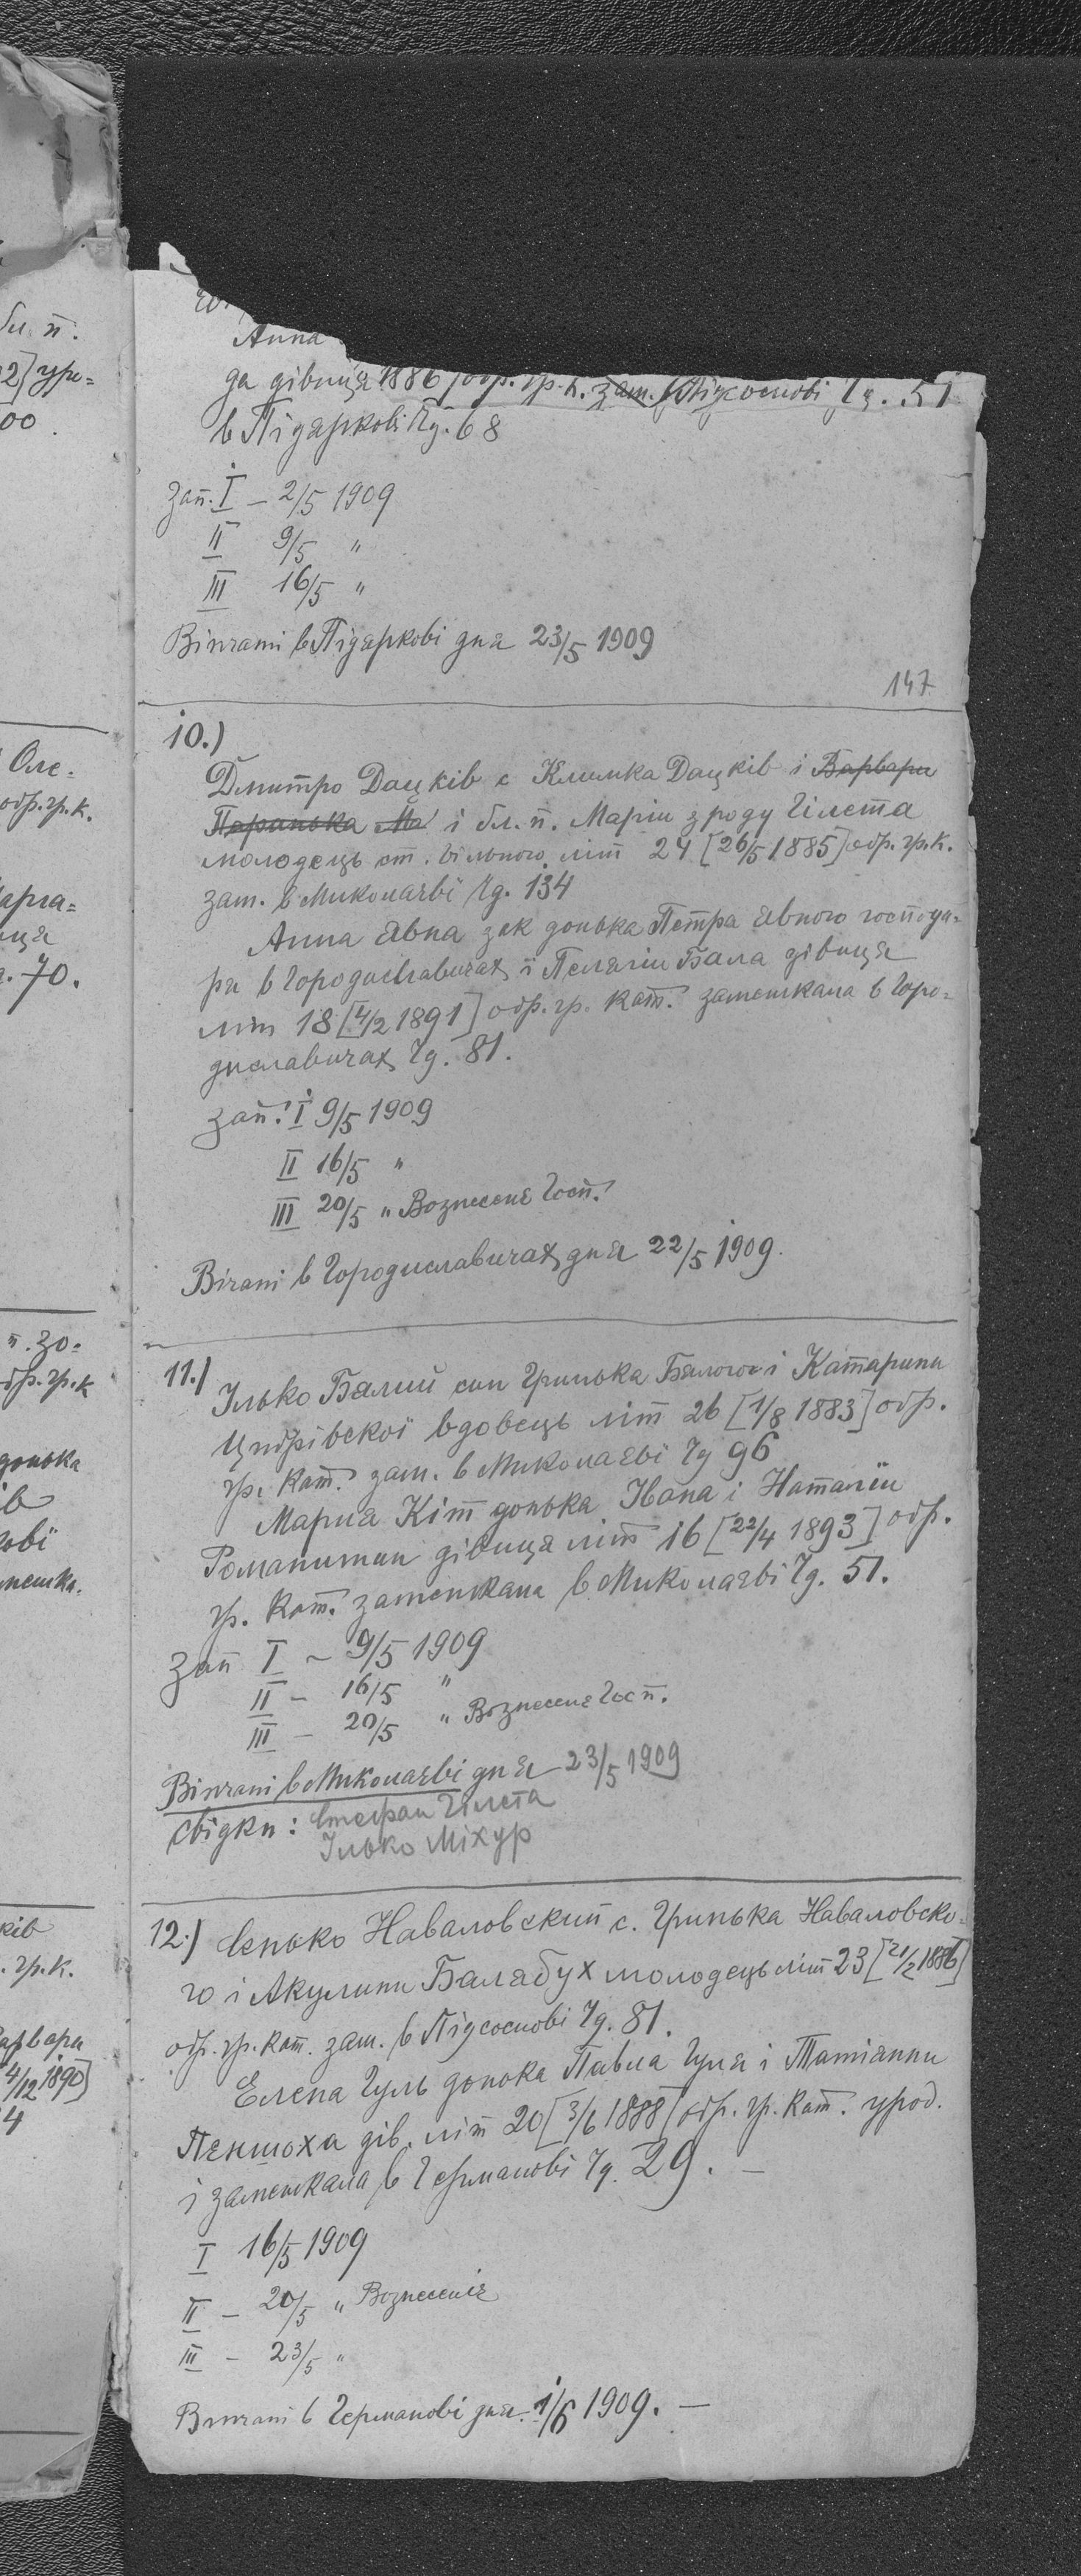 Анна
да дівиця 1886 обр. гр. к. зам. Підсоснові Чд. 51
в Підярькові Чд. 68
Зап. I – 2/5 1909
II 9/5 "
III 16/5 "
Вінчані в Підярькові дня 23/5 1909
147
10.)
Дмитро Дацків с Климка Дацків і Варвари
Паранька Ма і бл. п. Марії з роду Гілета
молодець ст. вільного літ 24 [26/5 1885] обр. гр. к.
зам. в Миколаєві Чд. 134
Анна Явна зак донька Петра Явного господа-
ря в Городиславичах і Пелягії Бала дівиця
літ 18 [4/2 1891] обр. гр. кат. замешкала в Горо-
диславичах Чд. 81.
зап. I 9/5 1909
II 16/5 "
III 20/5 " Вознесенє Госп.
Вічані в Городиславичах дня 22/5 1909.
11.)
Ілько Балий син Гринька Балого і Катарини
Цидрівскої вдовець літ 26 [1/8 1883] обр.
гр. кат. зам. в Миколаєві Чд 96
Мария Кіт донька Івана і Наталії
Романишин дівиця літ 16 [22/4 1893] обр.
гр. кат. замешкала в Миколаєві Чд. 51.
Зап I – 9/5 1909
II – 16/5 "
III – 20/5 " Вознесенє Госп.
Вінчані в Миколаєві дня 23/5 1909
Свідки: Стефан Гілета
Ілько Міхур
12.) Сенько Наваловский с. Гринька Наваловско-
го і Акулини Балабух молодець літ 23 [21/2 1886]
обр. гр. кат. зам. в Підсоснові Чд. 81.
Елена Гуль донька Павла Гуля і Татіянни
Пеншоха дів. літ 20 [3/6 1888] обр. гр. кат. урод.
і замешкала в Германові Чд. 29. –
I 16/5 1909
II – 20/5 " Вознесеніє
III – 23/5 "
Вінчані в Германові дня 1/6 1909. –